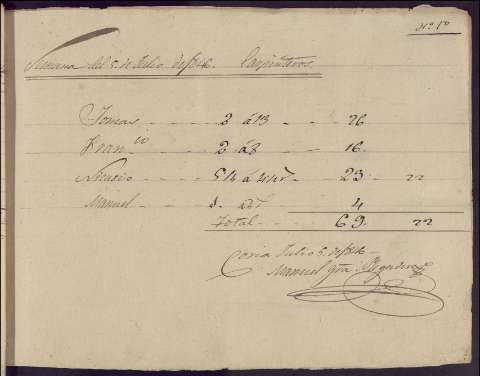 Nº 1º
Semana del 5. de Julio de 1846. Carpinteros.
Tomas 2 á 13 26
Fran.co 2 á 8 16.
5 1/2 á 23 22
Manuel 4
Total 69. 22
Coria Julio 5. de 1846
Manuel